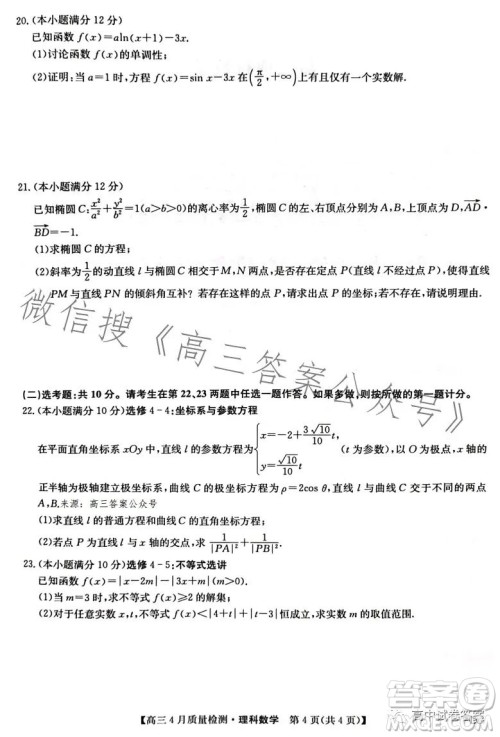 20.(本小题满分 12 分)
已知函数 f(x)=aln(x+1)-3x.
(1)讨论函数 f(x)的单调性;
(2)证明:当 a=1 时,方程 f(x)=sin x-3x 在(π/2,+∞)上有且仅有一个实数根.
21.(本小题满分 12 分)
已知椭圆 C:x²/a²+y²/b²=1(a>b>0)的离心率为1/2,椭圆 C 的左、右顶点分别为 A,B,上顶点为 D,AD·
BD=-1.
(1)求椭圆 C 的方程;
(2)斜率为1/2的动直线 l 与椭圆 C 相交于 M,N 两点,是否存在定点 P(直线 l 不经过点 P),使得直线
PM 与直线 PN 的倾斜角互补? 若存在这样的点 P,请求出点 P 的坐标;若不存在,请说明理由.
微信搜《高三答案公众号》
(二)选考题:共 10 分。请考生在第 22、23 两题中任选一题作答。如果多做,则按所做的第一题计分。
22.(本小题满分 10 分)选修 4-4:坐标系与参数方程
在平面直角坐标系 xOy 中,直线 l 的参数方程为{x=-2+3√10/10 t, y=√10/10 t (t 为参数),以
正半轴为极轴建立极坐标系,曲线 C 的极坐标方程为 ρ=2cos θ,
来源:高三答案公众号
(1)求直线 l 的普通方程和曲线 C 的
(2)若点 P 为直线 l 与 x 轴的交点,
求1/|PA|²+1/|PB|².
23.(本小题满分 10 分)选修 4-5:不等式选讲
已知函数 f(x)=|x-2m|-|x+m|(m>0).
(1)当 m=3 时,求不等式
(2)对于任意实数 x,t,不等式 f(x)<|4+t|+|t-4|恒成立,求实数 m 的取值范围.
【高三 4 月质量检测·理科数学 第 4 页(共 4 页)】
高中试卷答案